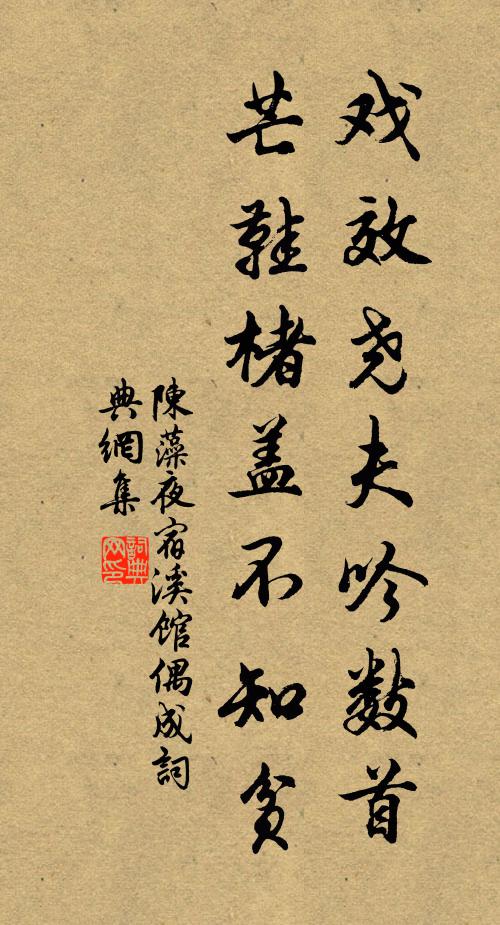 戏效尧夫吟数首
芒鞋楮盖不知贫
陳藻夜宿溪館偶成詞
典網集
詞典
网印